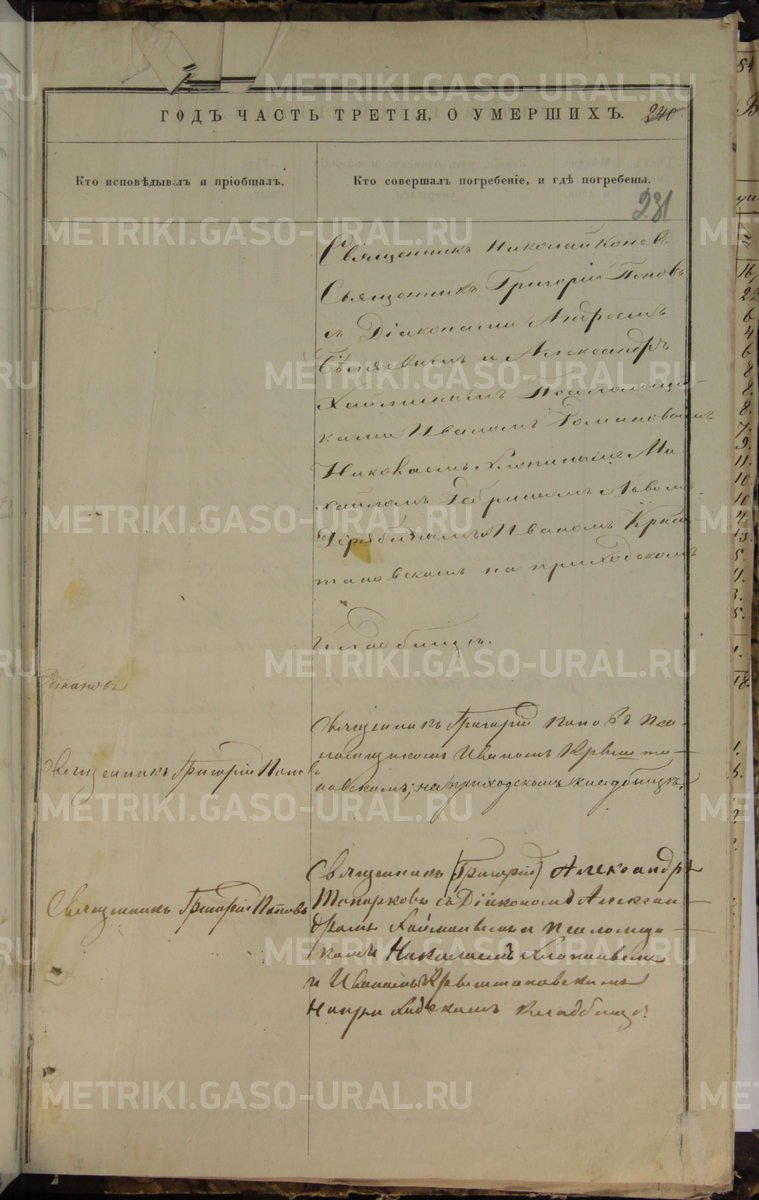 METRIKI.GASO-URAL.RU
ГОДЪ ЧАСТЬ ТРЕТІЯ, О УМЕРШИХЪ.
240
Кто исповѣдывалъ и пріобщалъ.
Кто совершалъ погребеніе, и гдѣ погребены.
231
Священникъ Николай
Священникъ Григорій Поповъ
съ Діаконами Андреемъ
Бѣляевымъ и Александръ
Псаломщи-
ками Иваномъ Романовымъ
Николаемъ Хлопинымъ Ми
хаиломъ Львомъ
Иваномъ Крыш
тановскимъ на приходскомъ
кладбищѣ.
Священникъ Григорій Поповъ
Священникъ Григорій Поповъ Пса-
ломщикомъ Иваномъ Крышта-
новскимъ, на приходскомъ кладбищѣ.
Священникъ Григорій Поповъ
Священникъ (Григорій) Александръ
Топорковъ съ Дійкономъ Алексан
дромъ и псаломщи
комъ Николаемъ
и Иваномъ Крыштановскимъ
На приходскомъ кладбищѣ.